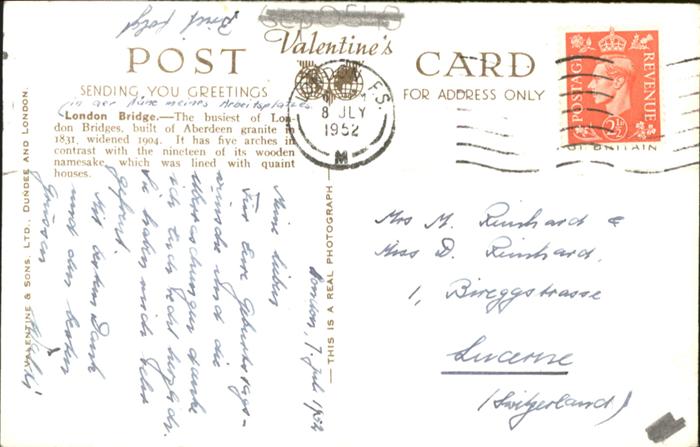 Brief folgt
POST
Valentine's
CARD
SENDING YOU GREETINGS
FOR ADDRESS ONLY
in der Nähe meines Arbeitsplatzes
London Bridge.—The busiest of Lon-
don Bridges, built of Aberdeen granite in
1831, widened 1904. It has five arches in
contrast with the nineteen of its wooden
namesake, which was lined with quaint
houses.
VALENTINE & SONS, LTD., DUNDEE AND LONDON.
THIS IS A REAL PHOTOGRAPH
8 JLY
1952
M
POSTAGE
REVENUE
2½
OF BRITAIN
London, 7. Juli 1952
Meine Lieben
Für Eure Geburtstags-
wünsche und die
Überraschungen danke
ich Euch recht herzlich.
Sie haben mich sehr
gefreut.
Mit bestem Dank
und den besten
Grüssen
Mrs M. Reinhard &
Miss D. Reinhard,
1, Bireggstrasse
Lucerne
(Switzerland)